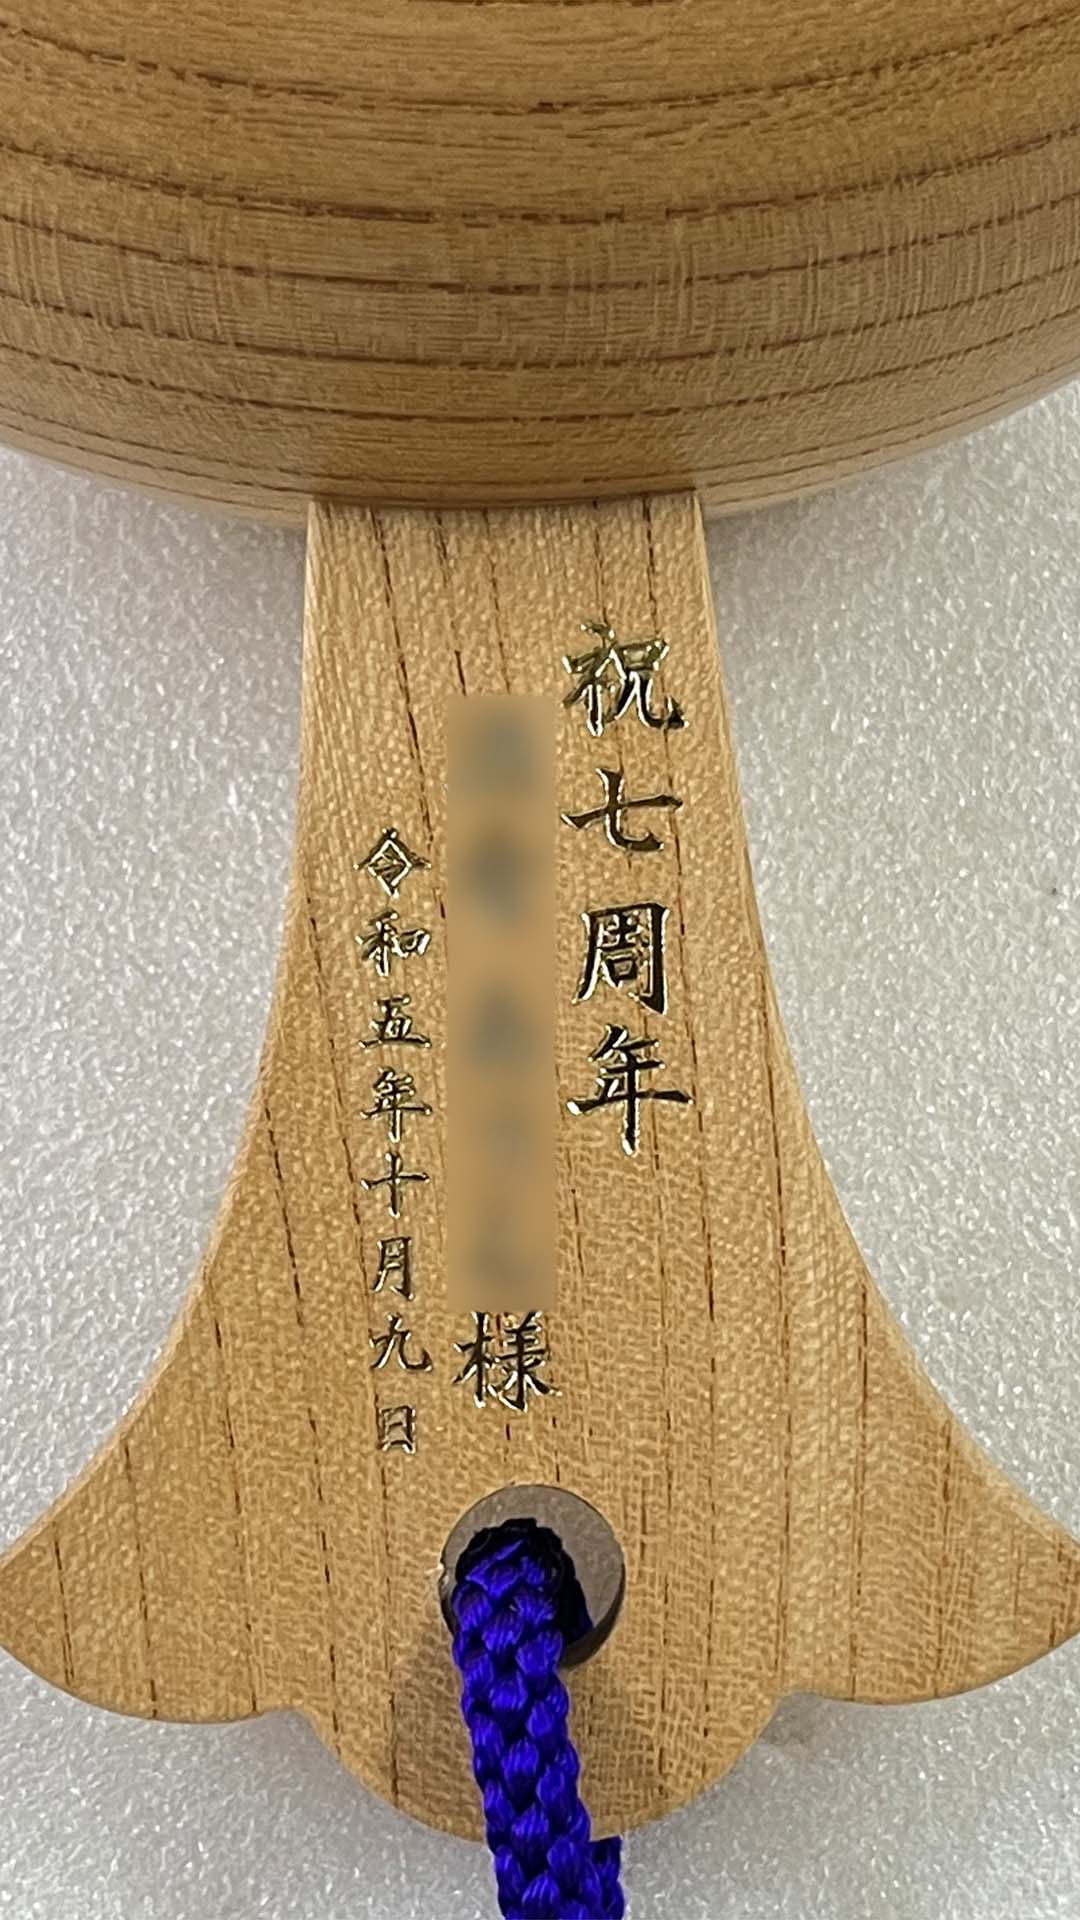 祝七周年
様
令和五年十月九日